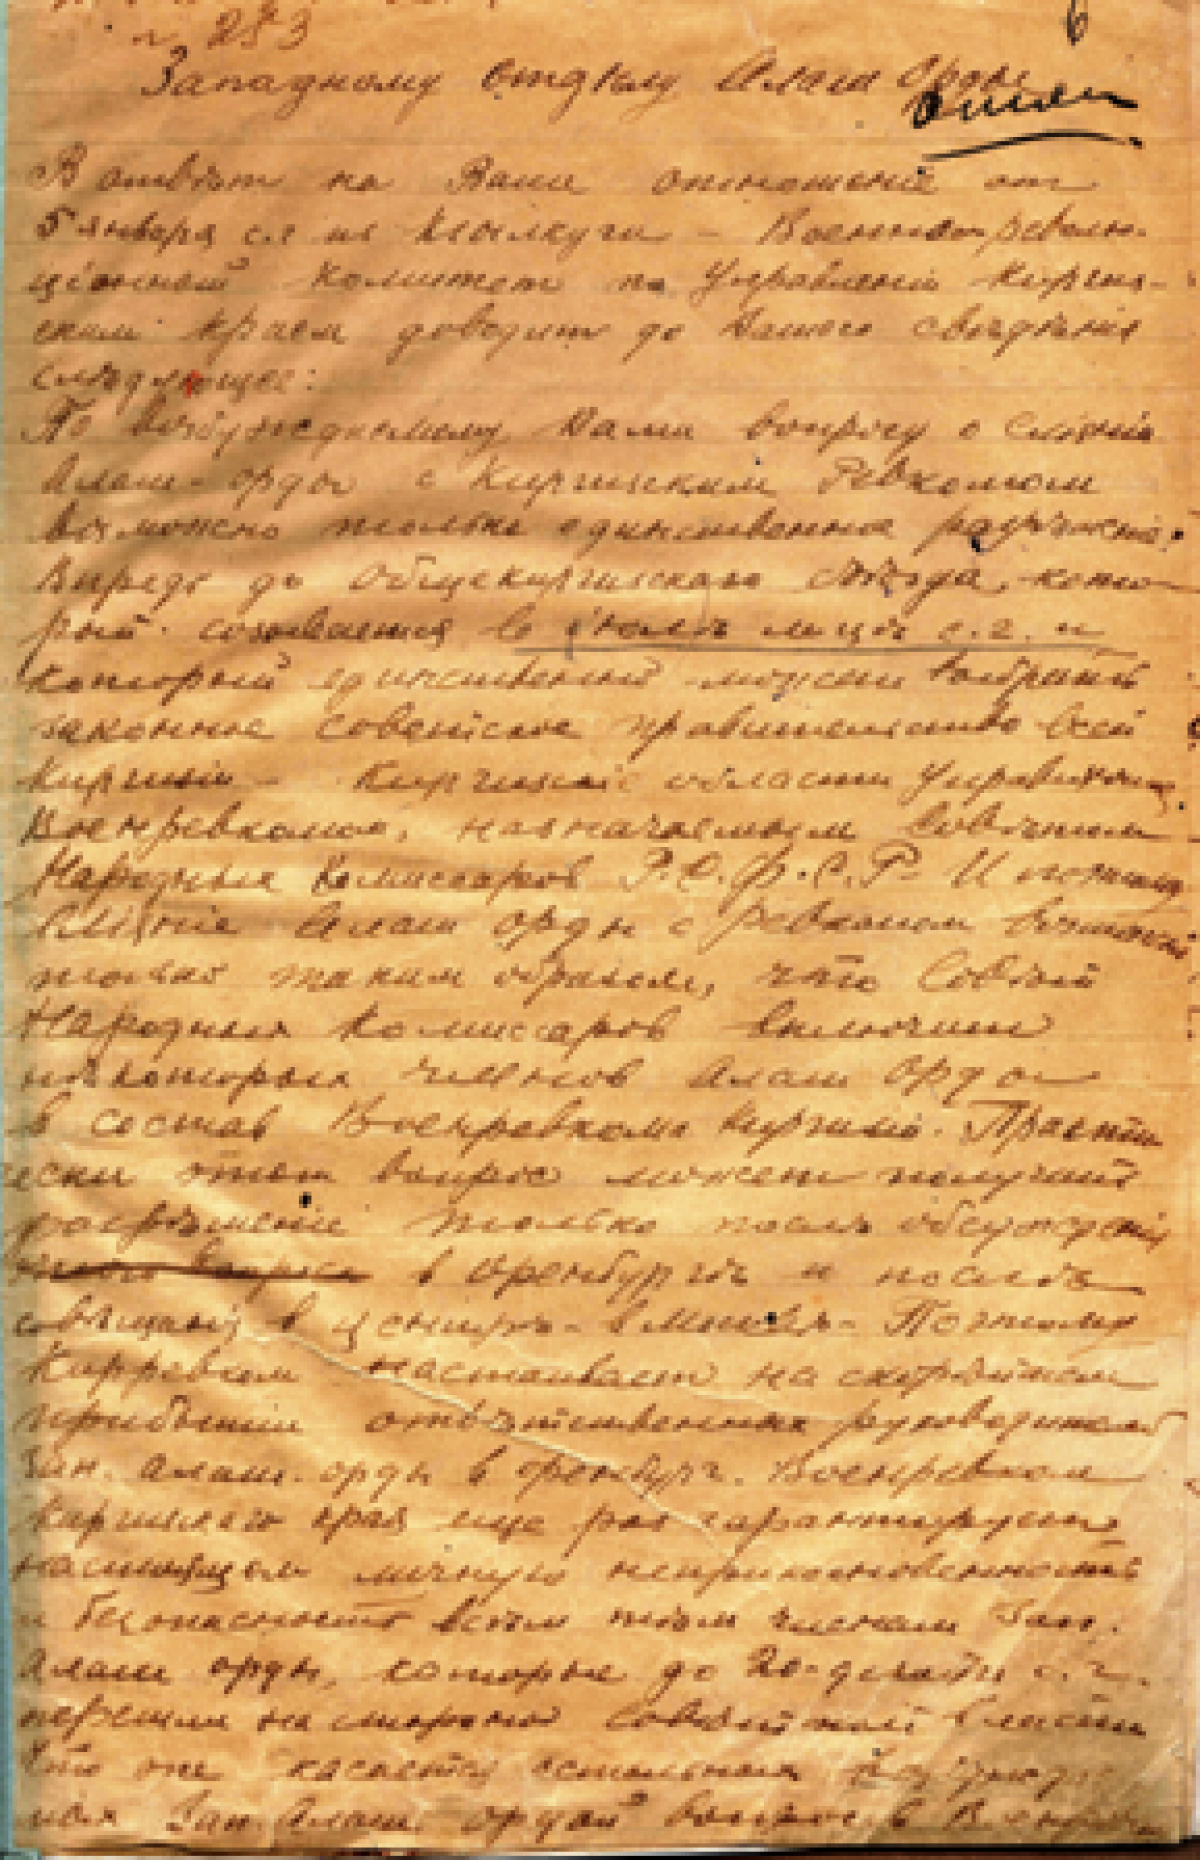 № 253
6
Западному отделу Алаш Орды
В ответ на Ваше отношение от
5 января с.г. из Кзылкуги – Военно-револю-
ціонный Комитет по Управлению Киргиз-
ским Краем доводит до Вашего сведения
следующее:
По возбуждаемому Вами вопросу о слиянии
Алаш-орды с Киргизским Ревкомом
возможно только единственное разрешение:
Впредь до Общекиргизского Съезда, кото-
рый созывается в июле м-це с.г. и
который единственный может выбрать
законное советское правительство всей
Киргизии – Киргизская область управляется
Военревкомом, назначаемым Советом
Народных Комиссаров Р.С.Ф.С.Р. И потому
слияние Алаш орды с ревкомом возможно
только таким образом, что Совет
Народных Комиссаров включит
некоторых членов Алаш Орды
в состав Военревкома Киргизии. Практи
чески этот вопрос может получить
разрешение только после обсуждения
этого вопроса в Оренбурге и после
совещания в центре – в Москве – Поэтому
Кирревком настаивает на скорейшем
прибытии ответственных руководителей
Зап. Алаш-орды в Оренбург. Военревком
Киргизского края еще раз гарантирует
настоящим личную неприкосновенность
и безопасность всем тем членам Зап.
Алаш орды, которые до 20-декабря с.г.
перешли на сторону советской власти
Что же касается остальных
мых Зап. Алаш ордой вопросов